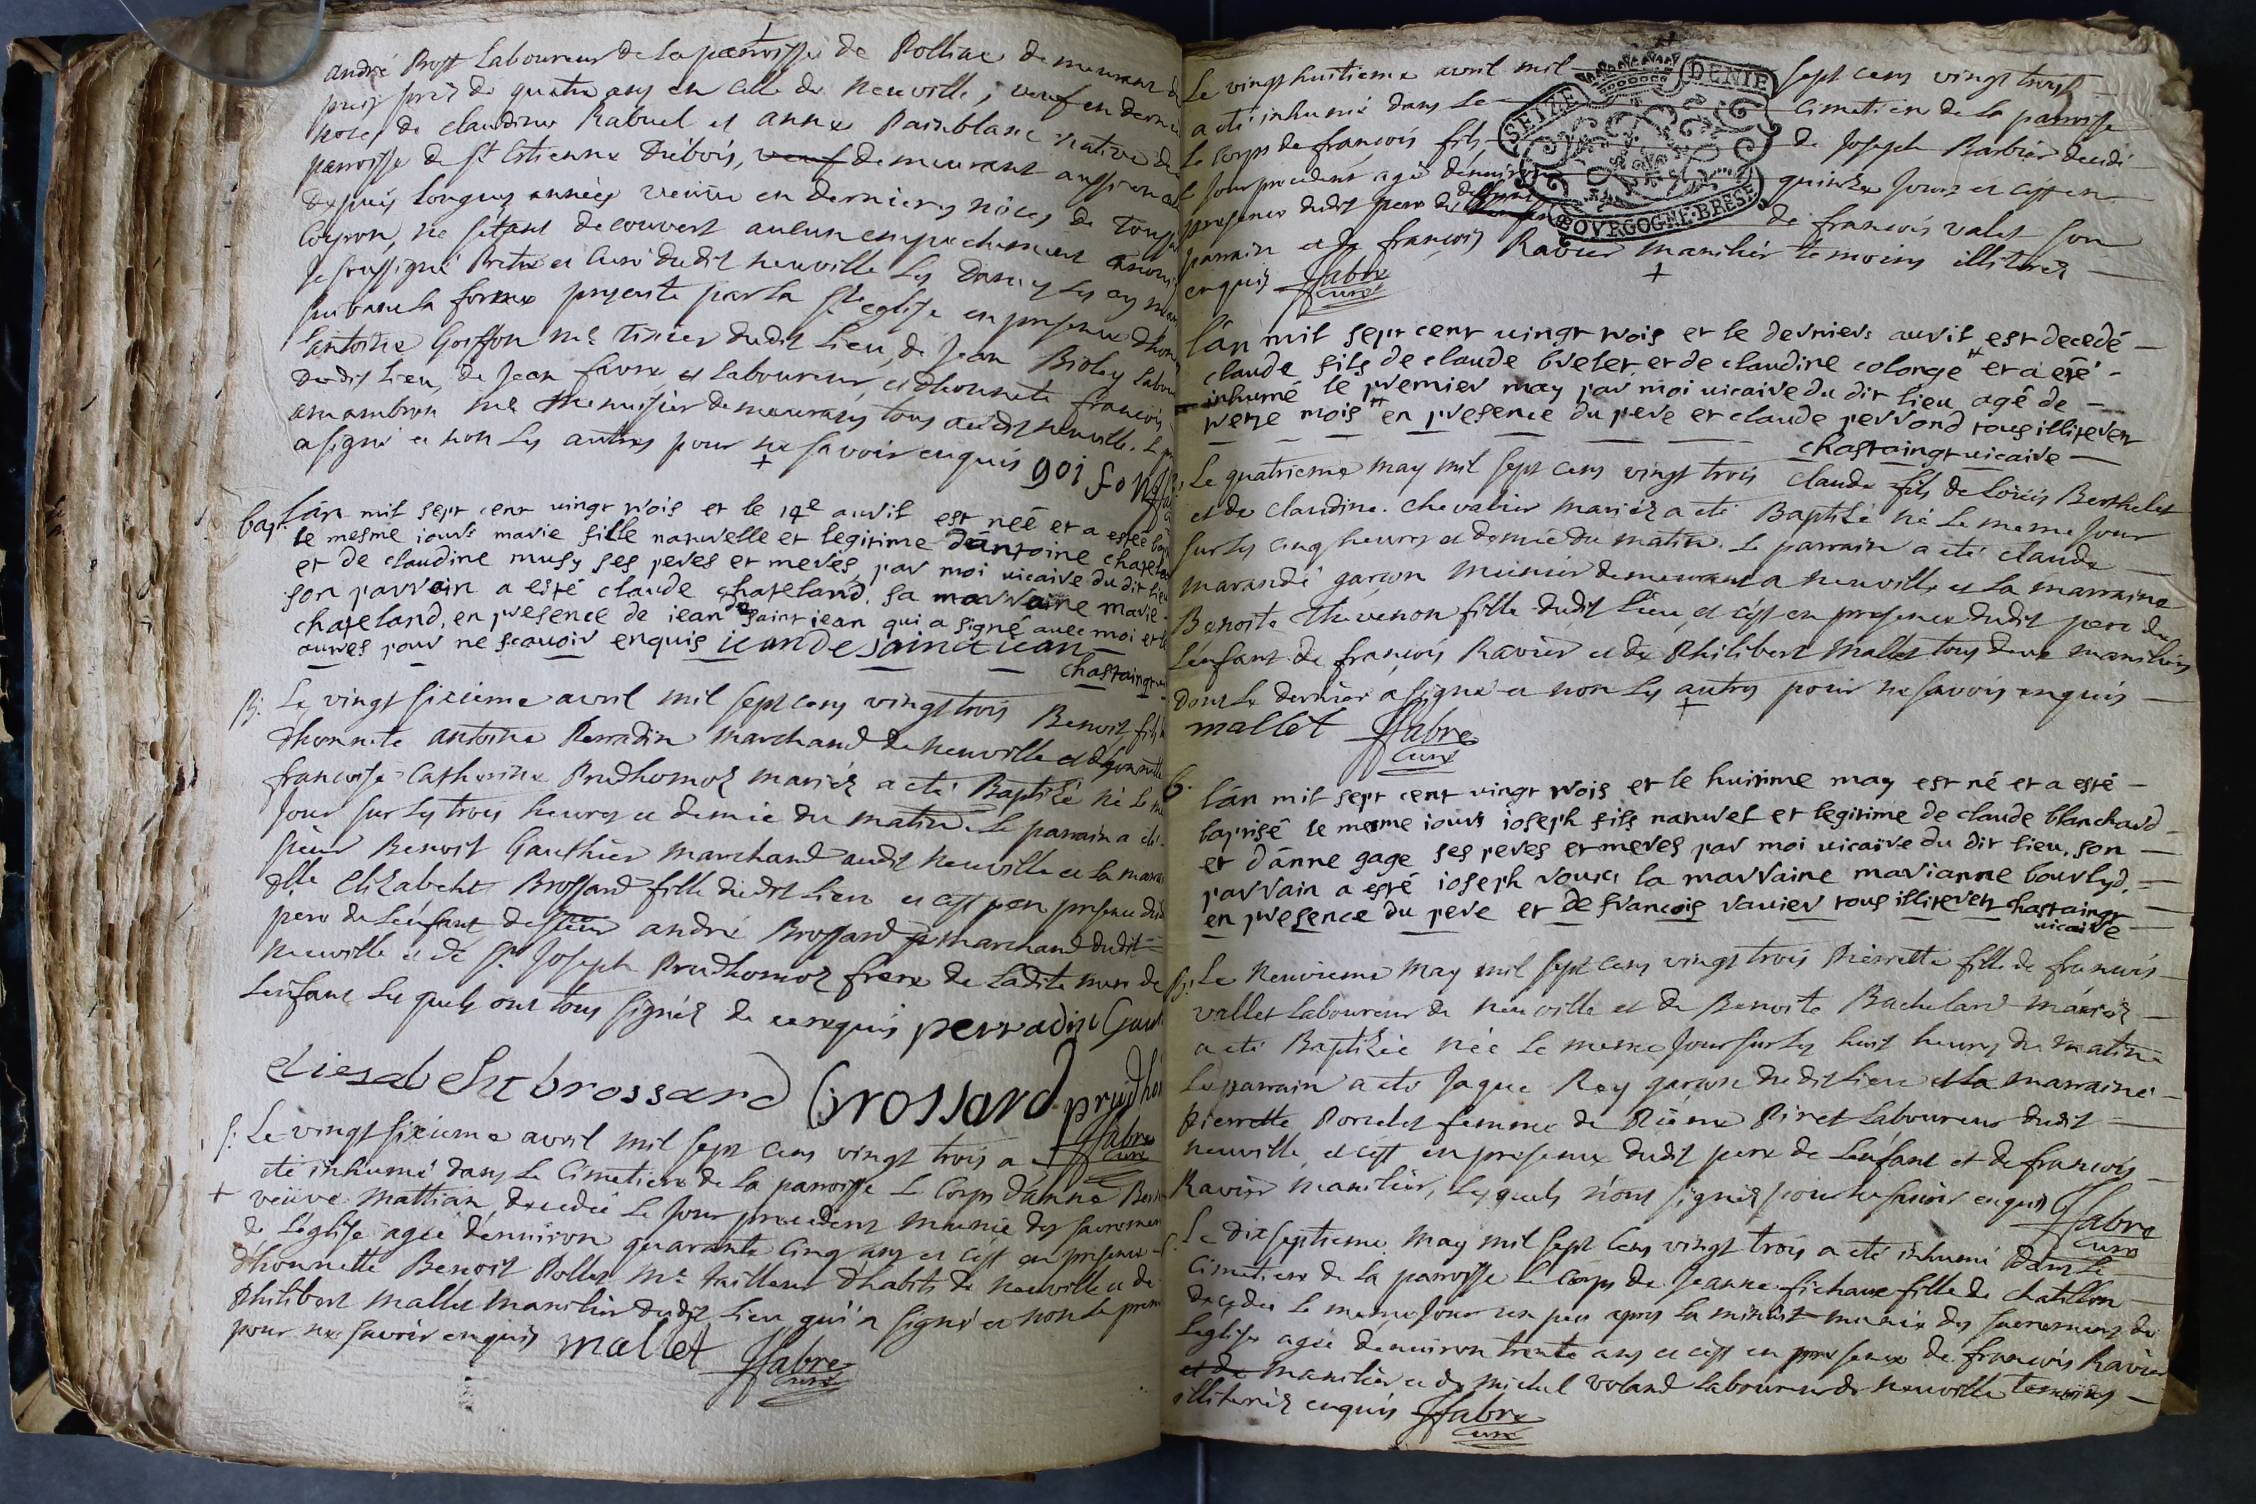 andré Prost Laboureur de la parroisse de Polliac demeurant de
puis près de quatre ans en celle de neuville, veuf en derniere
noces de claudine Rabuel et anne Painblanc native de
parroisse de st Estienne Dubois, veuf demeurant aussi en
depuis longues années veuve en dernieres nôces de
Coyron, ne sétant decouvert aucun empechement
Je soussigné Pretre et Curé dudit neuville
suivant la forme prescrite par la ste eglise en presence dhon
antoine Goiffon me Tixier dudit Lieu, de Jean Bioley Labou
dudit Lieu, de Jean favre et Laboureur, et dhonnete francois
me menuisier demeurans tous audit neuville. Le pr
a signé et non les autres pour ne savoir enquis goifon
bapt. l'an mil sept cent vingt trois et le 14e avril est neé et a esteé bap
le mesme iours marie fille naturelle et legitime dantoine chapeland
et de claudine musy ses peres et meres, par moi vicaire du dit lieu
son parrain a esté claude chapeland, sa marraine marie
chapeland, en presence de iean de saint iean qui a signé avec moi et le
autres pour ne scauoir enquis jean de sainct iean
chastaingt
B. Le vingt sixieme avril mil sept cens vingt trois Benoit fils
dhonnete antoine Perradin marchand de neuville et dhonnette
francoise Catherine Prudhomoz mariéz a eté Baptizé né le me
Jour sur les trois heures et demie du matin. Le parrain a eté
sieur Benoist Gauthier marchand audit neuville et la marr
dlle Elizabeht Brossard fille dudit Lieu et c'est en presence dud
pere de Lenfant de sieur andré Brossard marchand dudit
neuville et de sr Joseph Prudhomoz frere de ladite mere de
Lenfant Lesquels ont tous signéz de ce requis perradin Gaut
eliesabeht brossard Brossard prudho
Fabre
curé
S. Le vingt sixieme avril mil sept cens vingt trois a
eté inhumé dans le Cimetiere de la parroisse le corps danne
veuve Mattian, decedée le Jour precedent munie des sacremen
de l'église agée denviron quarante cinq ans et c'est en presence
dhonnette Benoit Pollet Me tailleur dhabits de neuville et de
Philibert Mallet manilier dudit Lieu qui a signé et non le prem
pour ne savoir enquis mallet Fabre
curé
SEIZE DENIE
BOURGOGNE·BRESSE
Le vingt huitieme avril mil sept cens vingt trois
a eté inhumé dans le cimetiere de la parroisse
Le corps de francois fils de Joseph Barbier decedé
le Jour precedent agé denviron quinze Jours et c'est en
presence dudit pere de de francois valet son
parrain et de francois Ravier manilier temoins illiteréz
enquis Fabre
curé
l'an mil sept cent vingt trois et le derniers avril est decedé
claude fils de claude breter et de claudine colonge et a eté
inhumé le premier may par moi vicaire du dit lieu agé de
treze mois en presence du pere et claude perrond tous illiterez
chastaingt vicaire
Le quatrieme may mil sept cens vingt trois claude fils de Loüis Berthelet
et de claudine chevalier mariéz a eté Baptizé né le meme Jour
sur les cinq heures et demie du matin. Le parrain a eté claude
marandé garçon meunier demeurant a neuville et la marraine
Benoite Thevenon fille dudit Lieu, et c'est en presence dudit pere de
Lenfant de françois Ravier et de Philibert Mallet tous deux maniliers
dont le dernier a signé et non les autres pour ne savoir enquis
mallet Fabre
curé
b. l'an mil sept cent vingt trois et le huitime may est né et a esté
baptisé le mesme iours ioseph fils naturel et legitime de claude blanchard
et d'anne gage ses peres et meres par moi vicaire du dit lieu, son
parrain a esté ioseph la marraine marianne
en presence du pere et de francois ravier tous illiterez chastaingt
vicaire
B. Le neuvieme may mil sept cens vingt trois Pierrette fille de francois
vallet laboureur de neuville et de Benoite Bachelard mariéz
a eté Baptizée née le meme Jour sur les huit heures du matin
Le parrain a eté Jaque Rey garçon dudit Lieu et la marraine
pierrette Porcelet femme de Piérre Piret Laboureur dudit
neuville, et c'est en presence dudit pere de Lenfant et de francois
Ravier manilier, lesquels n'ont signéz pour ne savoir enquis Fabre
curé
S. Le dix septieme may mil sept cens vingt trois a eté inhumé dans le
cimetiere de la parroisse le corps de Jeanne fichaux fille de chatillon
decedée le meme Jour un peu apres la minuit munie des sacremens de
leglise agée denviron trente ans et c'est en presence de francois Ravier
et de manilier et de michel voland laboureur de neuville temoins
illiteréz enquis Fabre
curé